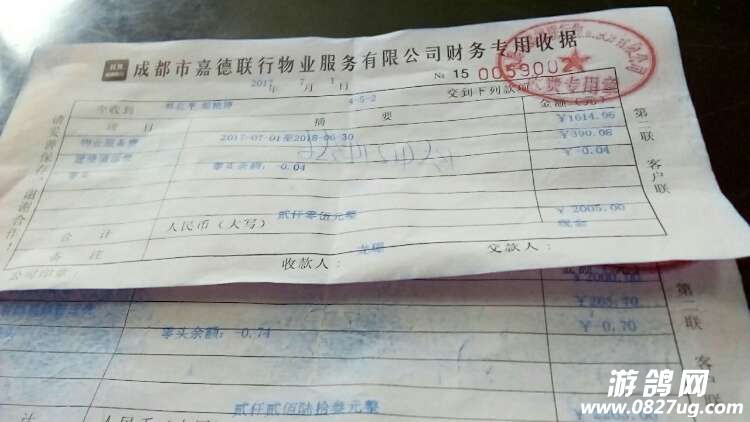 成都市嘉德联行物业服务有限公司财务专用收据
2017年 7月 1日
№ 15 0059002
今收到 4-5-2 交到下列款项
项目 摘要 金额（元）
物业服务费 2017-07-01至2018-06-30 ￥1614.96
￥390.08
零头 零头余额：0.04 ￥-0.04
贰仟零伍元整
合计 人民币（大写） ￥ 2005.00
备注 现金
公司印章： 收款人： 交款人：
请妥善保存，谢谢合作！
第二联 客户联
收费专用章
￥2000.00
￥265.70
零头余额：-0.74 ￥-0.70
贰仟贰佰陆拾叁元整
计 人民币（大写）
第二联 客户联
游鸽网
www.0827ug.com